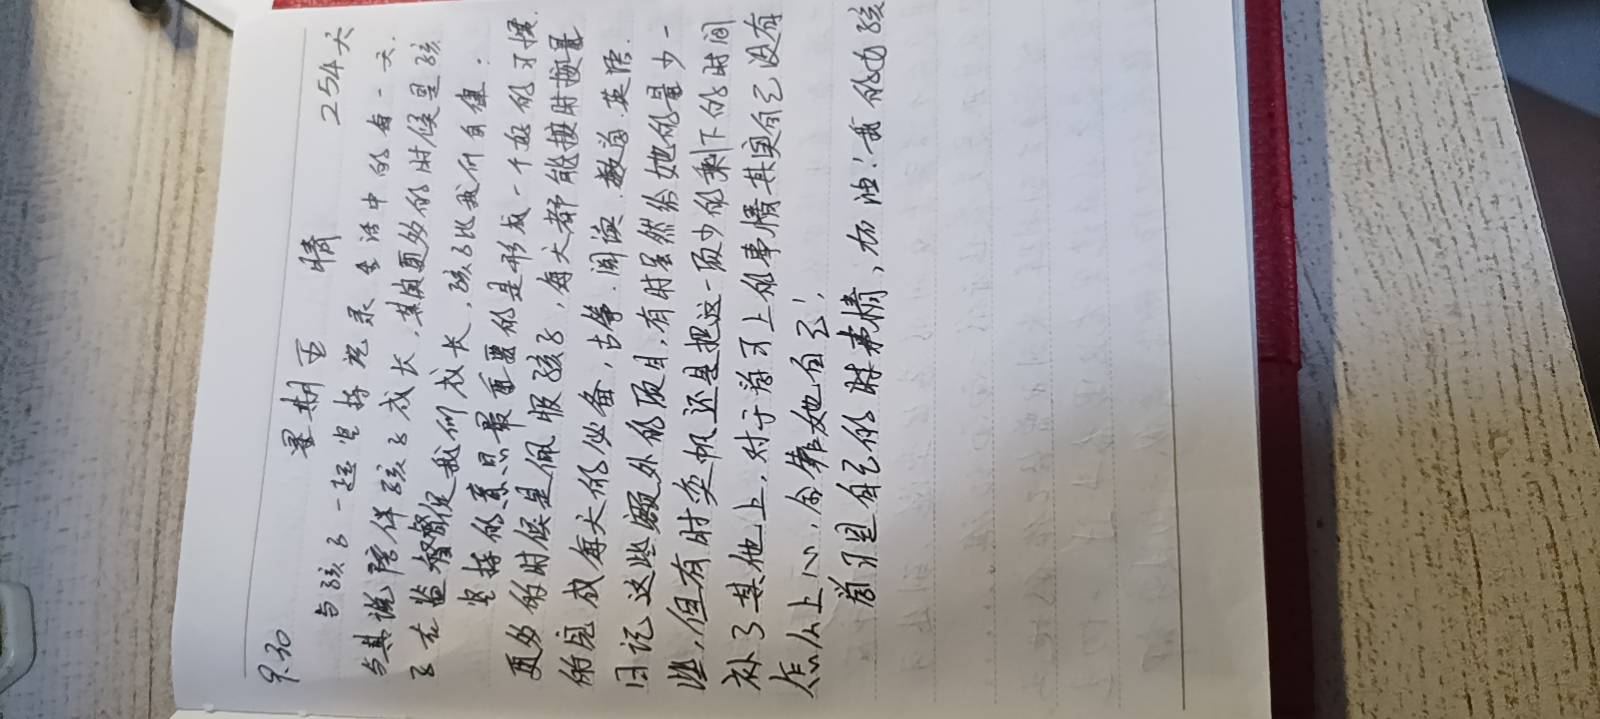 9.30 星期五 晴 254天
与孩子一起坚持记录生活中的每一天.
与其说陪伴孩子成长,其实更多的时候是孩
子在监督促我们成长,孩子比我们自律:
坚持的意思最重要的是形成一个好的习惯.
更多的时候是佩服孩子,每天都能按时按量
的完成每天的必备,古筝.阅读.数学.英语.
日记这些额外的项目,有时虽然给她的量少一
些,但有时奕帆还是把这一项少的剩下的时间
补了其他上,对于学习上的事情其实自己没有
怎么上心,全靠她自己!
学习是自己的时事情,加油!我的女孩